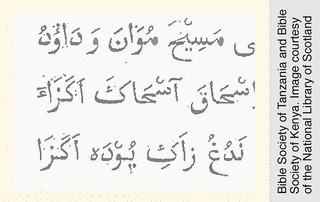 ى مَسِيْحَ مُوَانَ وَ دَاوُدُ
اِسْحَاقَ آسْحَاكَ اَكَنْزَا
نَدُغُ زَاكِ يُوْدَه اَكَنْزَا
Bible Society of Tanzania and Bible
Society of Kenya. Image courtesy
of the National Library of Scotland